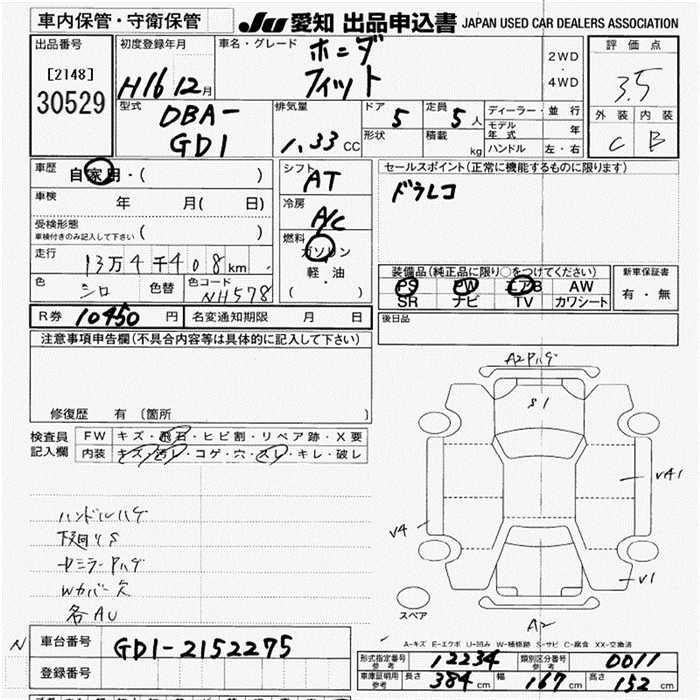 車内保管・守衛保管
JU 愛知 出品申込書 JAPAN USED CAR DEALERS ASSOCIATION
出品番号 初度登録年月 車名・グレード 評価点
[2148] 30529
H16 12月
ホンダ
フィット
2WD・4WD
3.5
外装 内装
C B
型式 DBA-
GD1
排気量 1.33 CC
ドア 5 定員 5人
形状 積載 kg
ディーラー・並行
モデル年式 年
ハンドル 左・右
車歴 自家用・( )
車検 年 月( 日)
受検形態
車検付きのみ記入して下さい ( )
走行 13万4千408km
色 シロ 色替 色コード NH578
シフト AT
冷房 A/C
燃料 ガソリン
軽・油
( )
セールスポイント(正常に機能するものに限ります)
ドラレコ
装備品(純正品に限り○をつけてください)
PS PW エアB AW
SR ナビ TV カワシート
新車保証書
有・無
R券 10450円 名変通知期限 月 日
後日品
注意事項申告欄(不具合内容等は具体的に記入して下さい)
修復歴 有 [箇所 ]
検査員記入欄
FW キズ・飛石・ヒビ割・リペア跡・X要
内装 キズ・汚レ・コゲ・穴・スレ・キレ・破レ
ハンドルハゲ
下廻りS
Wカバー欠
各AU
A2Pハゲ
S1
V41
V4
V1
A2
スペア
A-キズ E-エクボ U-凹み W-補修跡 S-サビ C-腐食 XX-交換済
N 車台番号 GD1-2152275
登録番号
形式指定番号 参考 12234 類別区分番号 参考 0011
車庫証明用 参考 長さ 384cm 幅 167cm 高さ 152cm